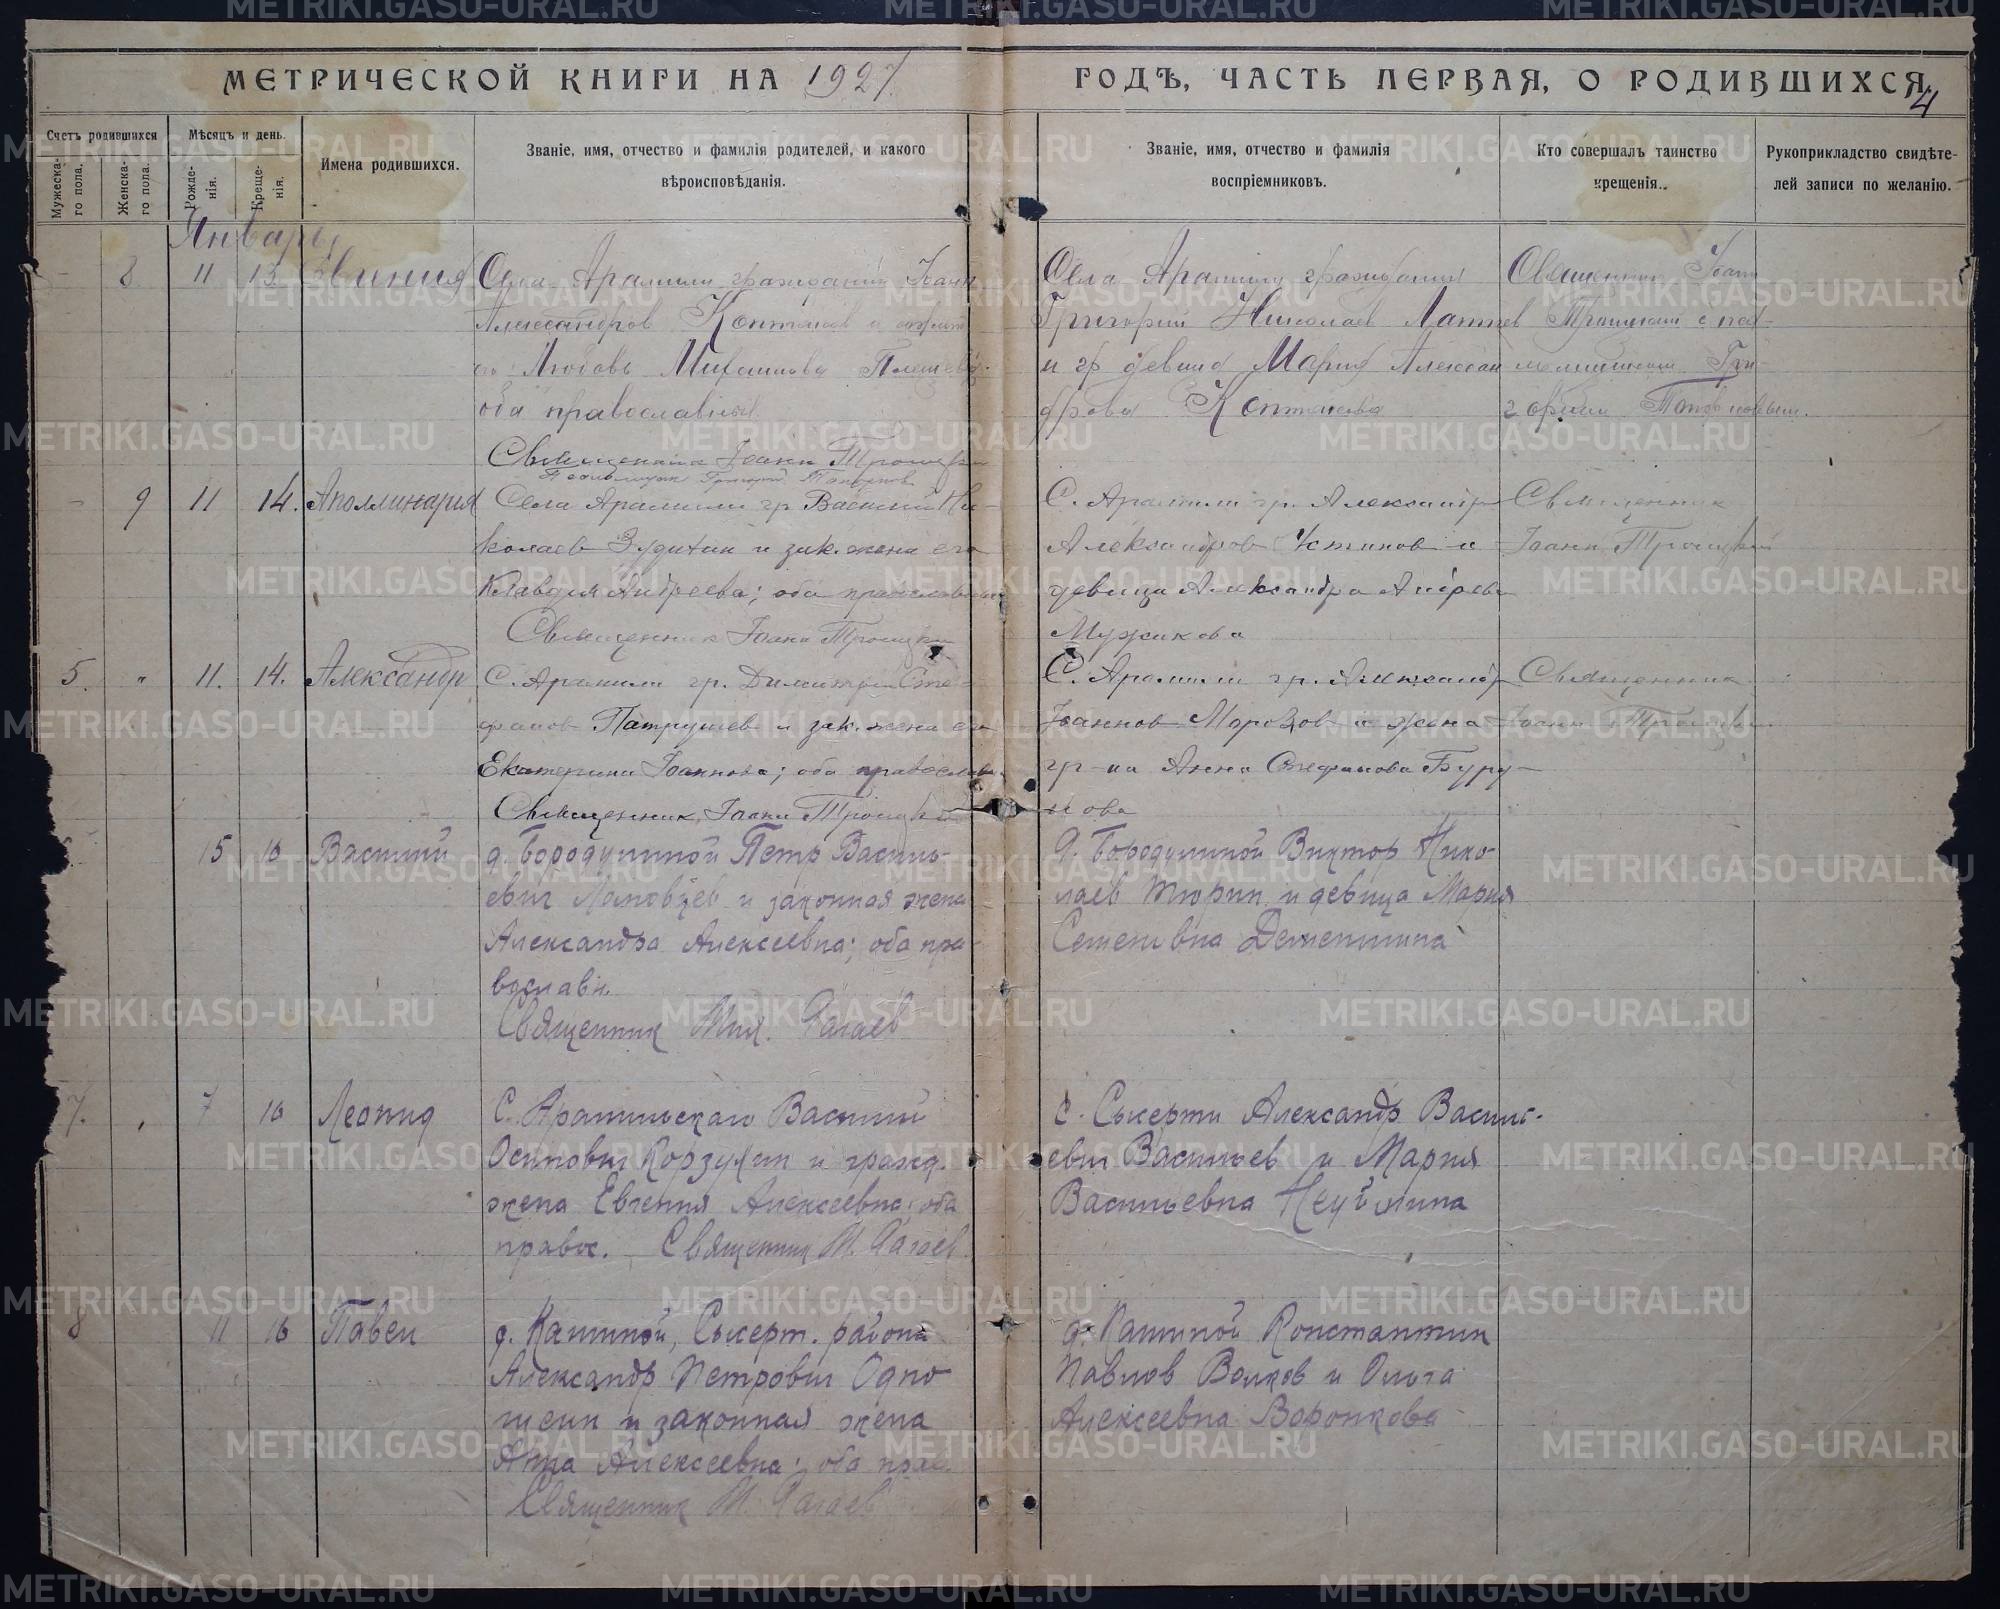 МЕТРИЧЕСКОЙ КНИГИ НА 1927
ГОДЪ, ЧАСТЬ ПЕРВАЯ, О РОДИВШИХСЯ.
4
Счетъ родившихся
Мужеска-го пола.
Женска-го пола.
Мѣсяцъ и день.
Рожде-нія.
Креще-нія.
Имена родившихся.
Званіе, имя, отчество и фамилія родителей, и какого
вѣроисповѣданія.
Званіе, имя, отчество и фамилія
воспріемниковъ.
Кто совершалъ таинство
крещенія.
Рукоприкладство свидѣте-
лей записи по желанію.
Январь
8 11 13
Села Арамили гражданин Иоанн
Александров Коптяков и
Любовь
оба православные
Священник Іоанн Троицкий
Села Арамили
Григорий Николаев Лаптев
и гр девица Мария Алексан
дрова Коптякова
Священник Іоанн
Троицкий с пса-
ломщиком Гри-
горием
9 11 14. Аполлинария
Села Арамили гр Василий Ни-
колаев Зудихин и зак. жена его
Клавдия Андреева; оба православные
Священник Іоанн Троицкий
С. Арамили гр. Александр
Александров Устинов и
девица Александра Андреева
Мужикова
Священник
Іоанн Троицкий
5. " 11. 14. Александр
С. Арамили гр. Димитрий Сте-
фанов Патрушев и зак. жена его
Екатерина Іоаннова; оба православн.
Священник Іоанн Троицкий
С. Арамили гр. Александр
Іоаннов Морозов и жена
гр-на Анна Стефанова Буру-
нова
Священник
Іоанн Троицкий
15 16 Василий
д. Бородулиной Петр Василь-
евич и законная жена
Александра Алексеевна; оба пра-
вославн.
Священник Мих. Рагаев
д. Бородулиной Виктор Нико-
лаев Тюрин и девица Мария
Семеновна Деменшина
7. 7 16 Леонид
С. Арамильскаго Василий
Осипович Корзухин и гражд.
жена Евгения Алексеевна; оба
правос. Священник М. Рагаев
с. Сысерти Александр Василь-
евич Васильев и Мария
Васильевна Неуймина
8 11 16 Павел
д. Кашиной, Сысерт. района
Александр Петрович Одно
шеин и законная жена
Анна Алексеевна; оба прав.
Священник М. Рагаев
д. Кашиной Константин
Павлов Волков и Ольга
Алексеевна Воронкова
METRIKI.GASO-URAL.RU